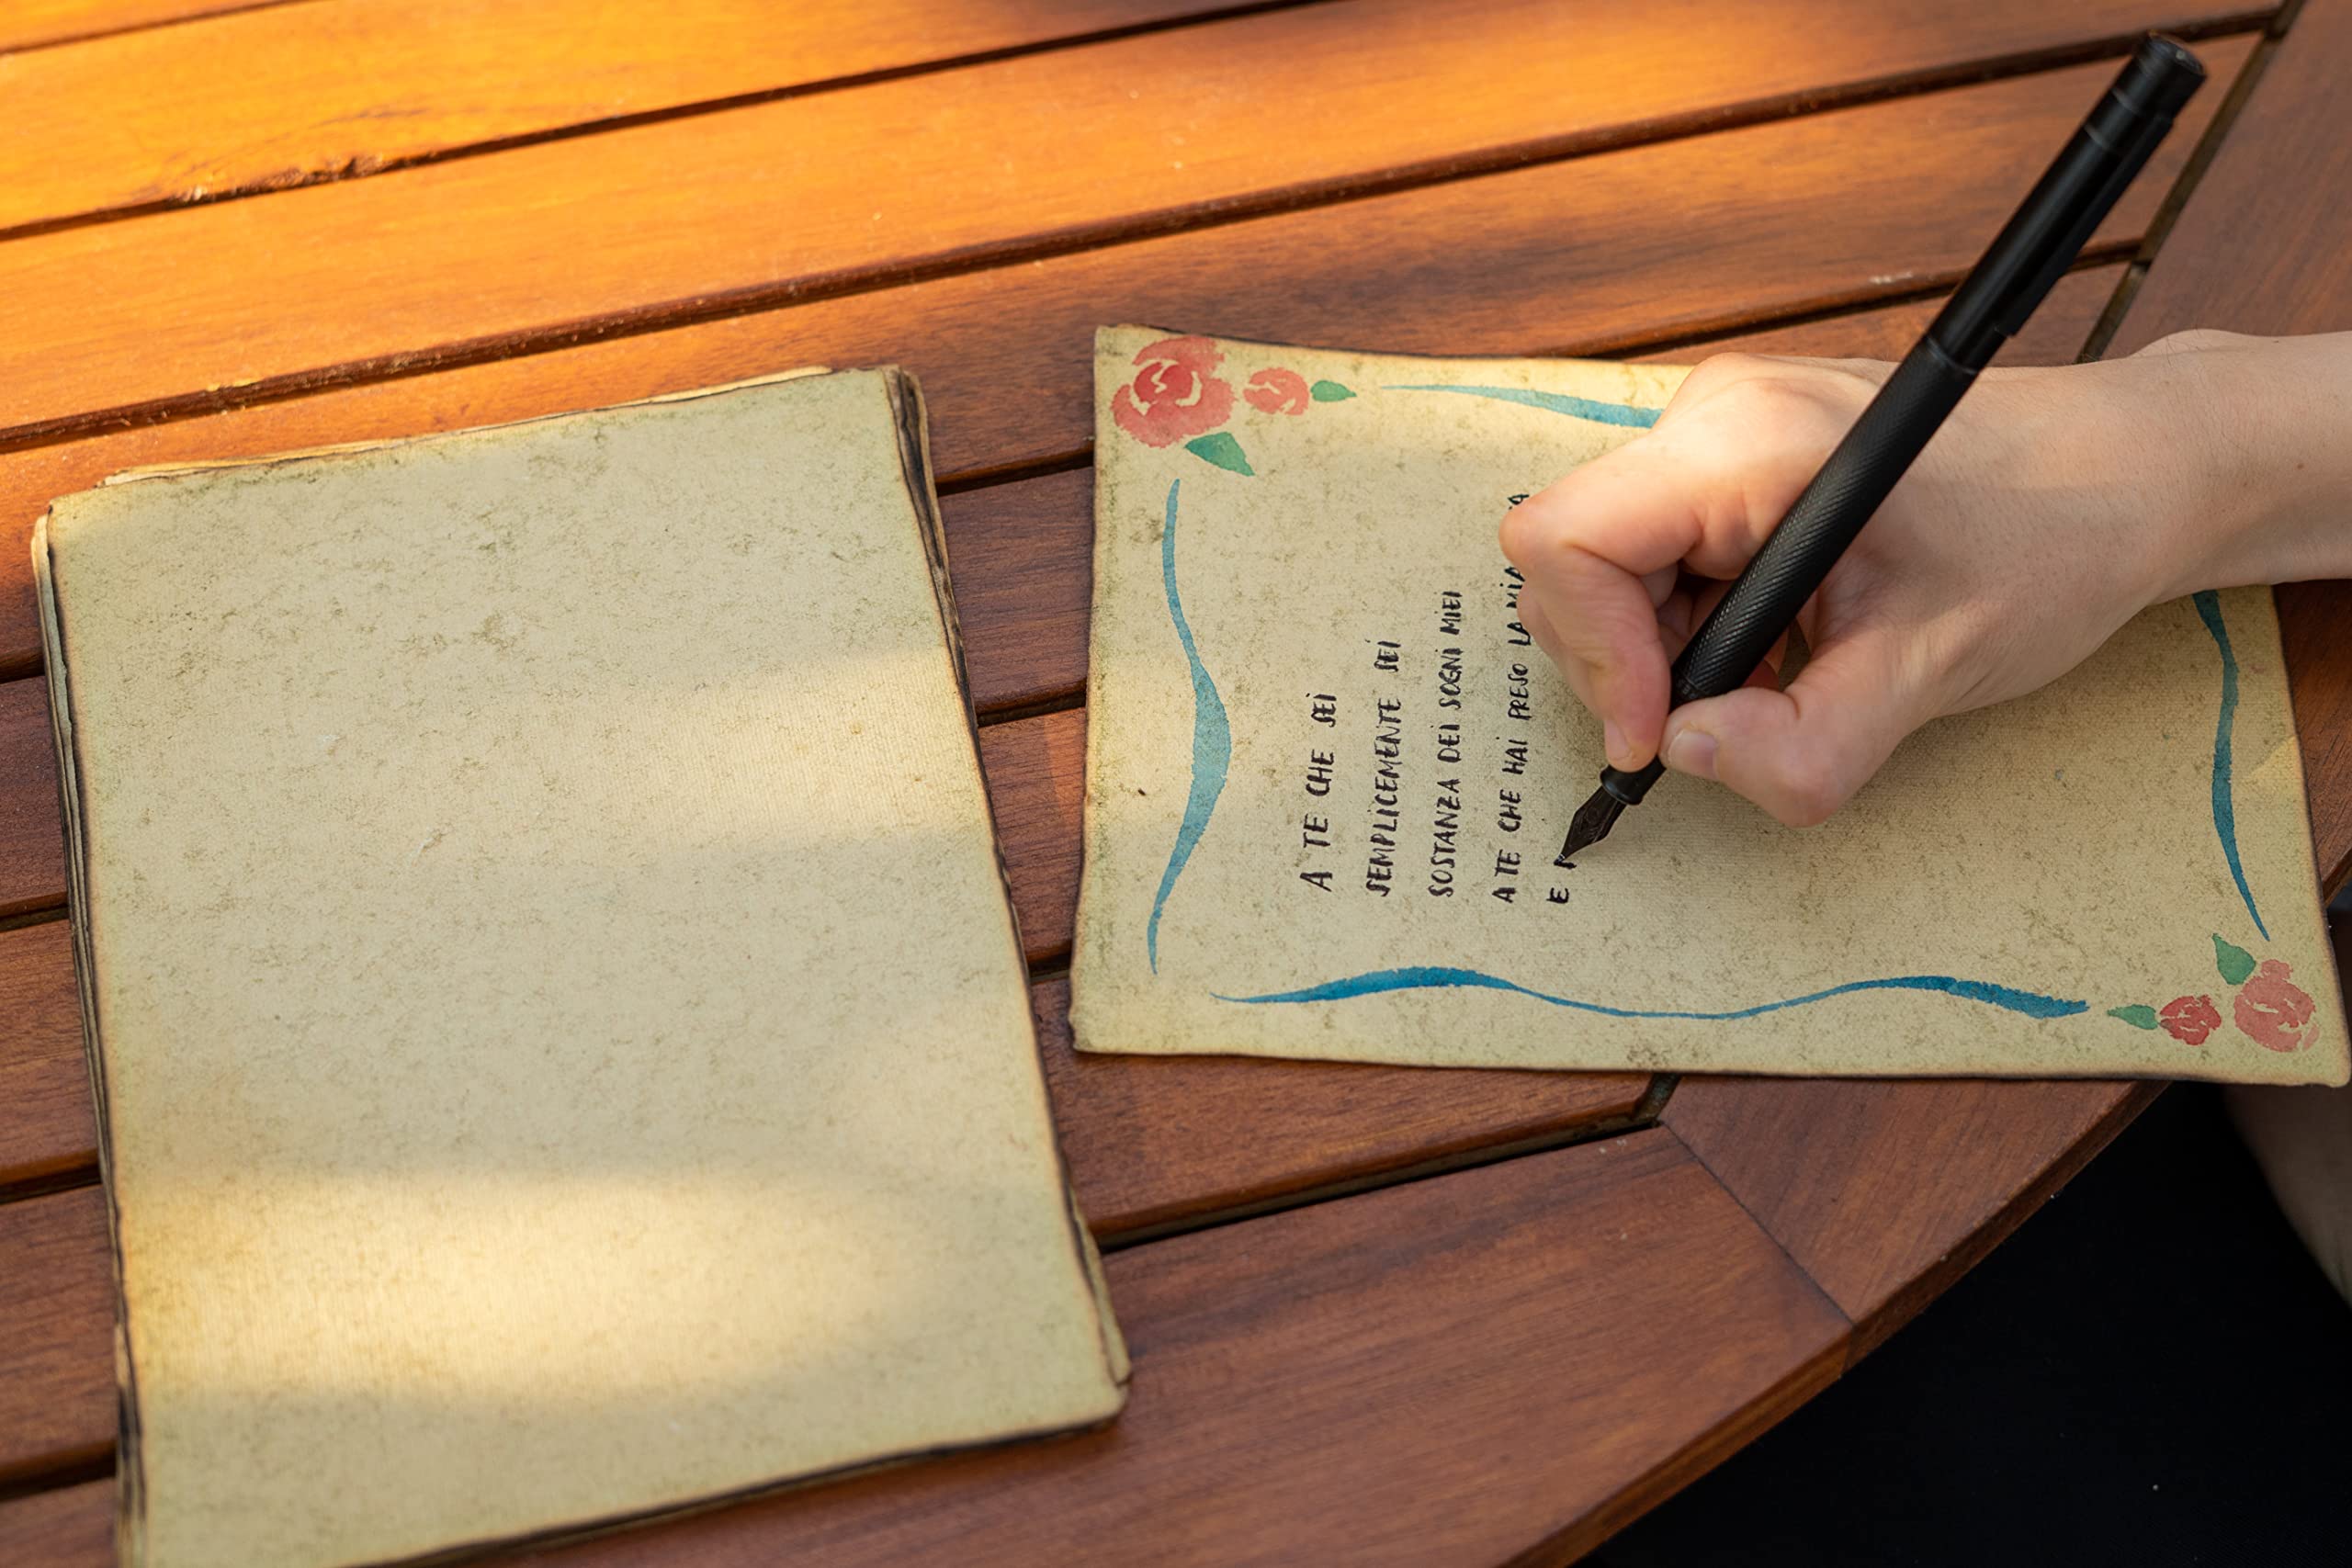 A TE CHE SEI
SEMPLICEMENTE SEI
SOSTANZA DEI SOGNI MIEI
A TE CHE HAI PRESO LA MIA
E